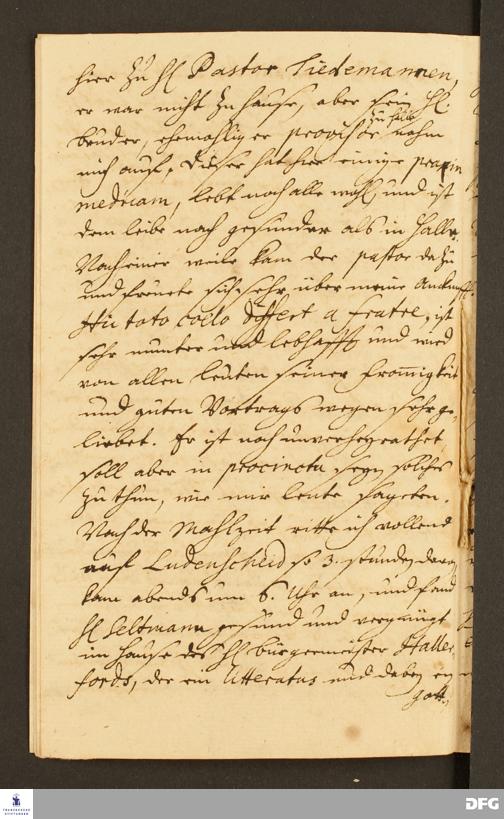 hier zu H. Pastor Tiedemannen,
er war nicht zu hause, aber sein H.
bruder, ehemahliger provisor zu Halle nahm
mich auf. Dieser hat hier einige praxin
medicam, lebt noch alle wohl, und ist
dem leibe nach gesunder als in Halle.
Nach einer weile kam der pastor dazu
und freuete sich sehr über meine Ankunfft.
Hic toto coelo differt a fratre, ist
sehr munter und lebhafft und wird
von allen leuten seiner frommigkeit
und guten Vortrags wegen sehr ge-
liebet. Er ist noch unverheyrathet
soll aber in procinctu seyn solches
zu thun, wie mir leute sageten.
Nach der Mahlzeit ritte ich vollend
auf Ludenscheid so 3. stunden davon,
kam abends um 6. Uhr an, und fand
H. Seltmann gesund und vergnügt
im hause des H. bürgermeister Haller-
fords, der ein litteratus und dabey ein
gott,
FRANCKESCHE STIFTUNGEN
DFG